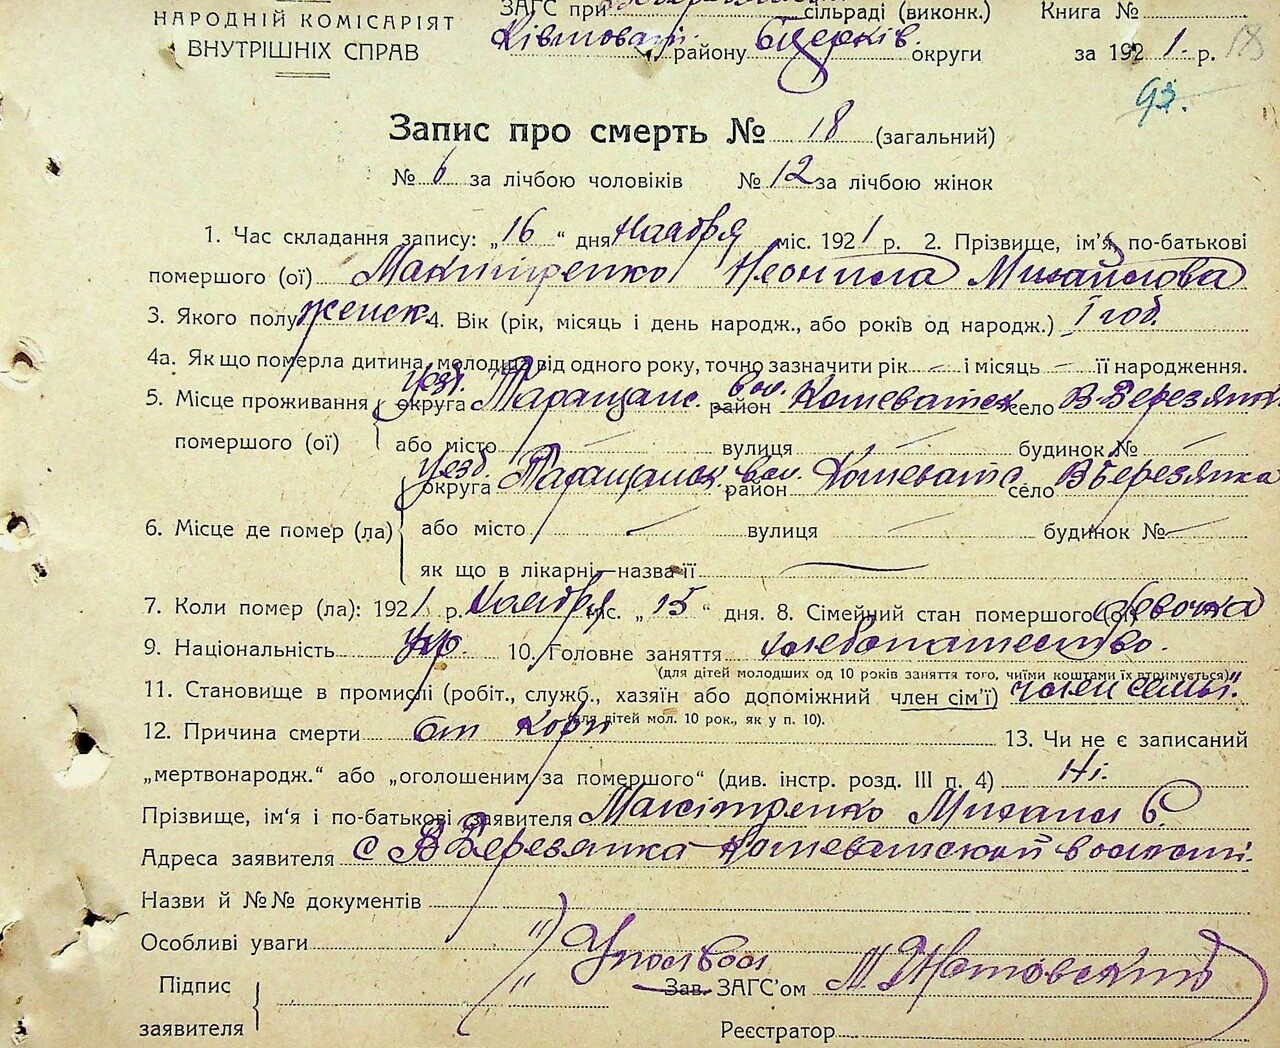 НАРОДНІЙ КОМІСАРІЯТ
ВНУТРІШНІХ СПРАВ
ЗАГС при сільраді (виконк.) Книга №
району Бцерків. округи за 1921 р. 18
93.
Запис про смерть № 18 (загальний)
№ 6 за лічбою чоловіків № 12 за лічбою жінок
1. Час складання запису: „16“ дня Ноября міс. 1921 р. 2. Прізвище, ім'я, по-батькові
помершого (ої) Макітренко Неонила Михайлова
3. Якого полу женск. 4. Вік (рік, місяць і день народж., або років од народж.) 1 год.
4а. Як що померла дитина, молодша від одного року, точно зазначити рік — і місяць — її народження.
уезд. вол.
5. Місце проживання округа Таращанс. район Кошеватск село В Березянк
помершого (ої) або місто — вулиця — будинок № —
уезд. вол.
округа Таращанск. район Кошеватс село В Березянка
6. Місце де помер (ла) або місто — вулиця — будинок № —
як що в лікарні—назва її —
7. Коли помер (ла): 1921 р. Ноября міс. „15“ дня. 8. Сімейний стан помершого (ої) девочка
9. Національність укр. 10. Головне заняття хлебопашество.
(для дітей молодших од 10 років заняття того, чиїми коштами їх утримується)
11. Становище в промислі (робіт., служб., хазяїн або допоміжний член сім'ї) член семьи.
(для дітей мол. 10 рок., як у п. 10).
12. Причина смерти от Кори 13. Чи не є записаний
„мертвонародж.“ або „оголошеним за помершого“ (див. інстр. розд. III п. 4) Ні.
Прізвище, ім'я і по-батькові заявителя Макітренко Михаил
Адреса заявителя с В Березянка Кошеватской волості.
Назви й №№ документів
Особливі уваги
Підпис
заявителя
Зав. ЗАГС'ом
Реєстратор